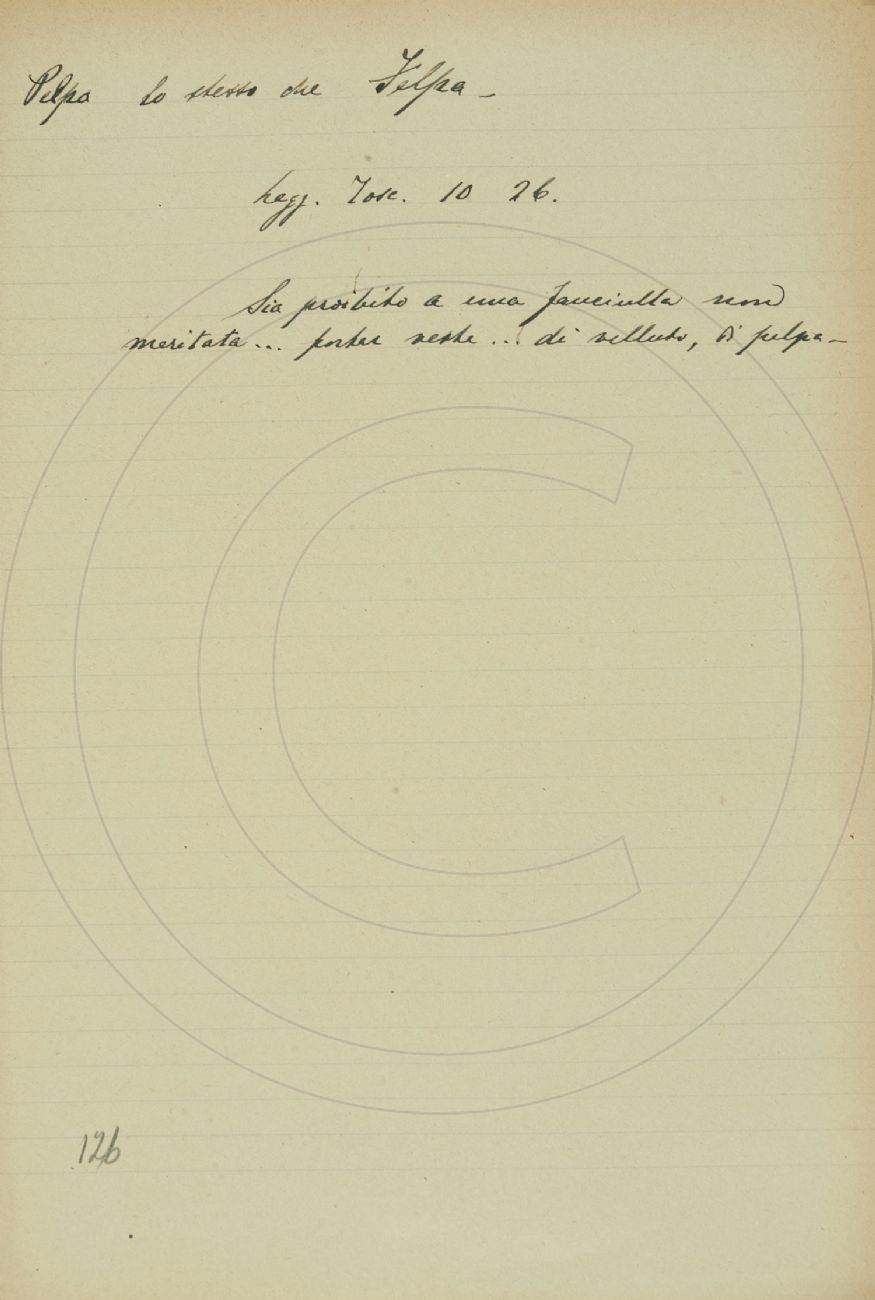 Pelpa lo stesso che Felpa -
Legg. Tosc. 10 26.
Sia proibito a una fanciulla non
meritata... portar veste... di velluto, di pelpa -
126